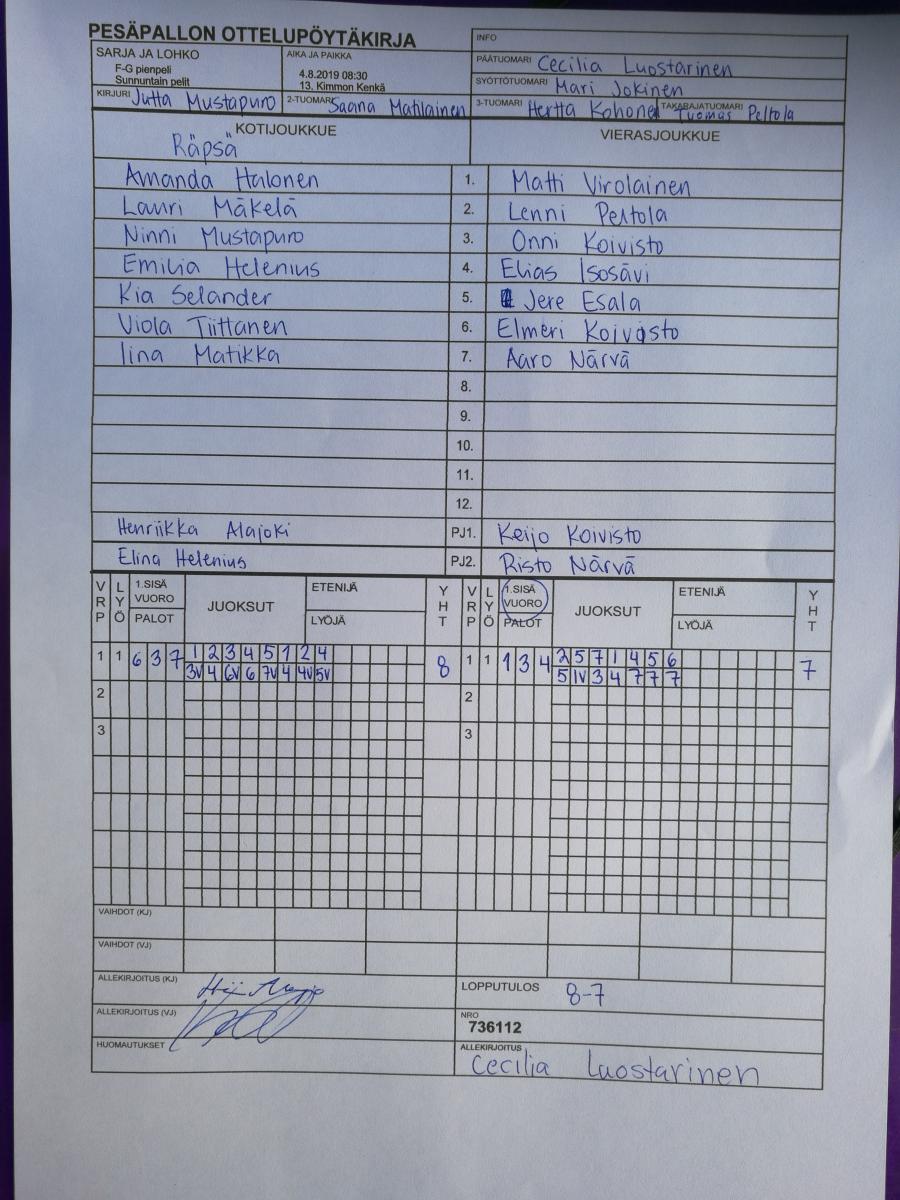 PESÄPALLON OTTELUPÖYTÄKIRJA
INFO
SARJA JA LOHKO
F-G pienpeli
Sunnuntain pelit
AIKA JA PAIKKA
4.8.2019 08:30
13. Kimmon Kenkä
PÄÄTUOMARI Cecilia Luostarinen
SYÖTTÖTUOMARI Mari Jokinen
KIRJURI Jutta Mustapuro 2-TUOMARI Saana Matilainen 3-TUOMARI Hertta Kohonen TAKARAJATUOMARI Tuomas Peltola
KOTIJOUKKUE VIERASJOUKKUE
Räpsä
Amanda Halonen 1. Matti Virolainen
Lauri Mäkelä 2. Lenni Peltola
Ninni Mustapuro 3. Onni Koivisto
Emilia Helenius 4. Elias Isosävi
Kia Selander 5. Jere Esala
Viola Tiittanen 6. Elmeri Koivisto
Iina Matikka 7. Aaro Närvä
8.
9.
10.
11.
12.
Henriikka Alajoki PJ1. Keijo Koivisto
Elina Helenius PJ2. Risto Närvä
VRP LYÖ 1.SISÄ VUORO PALOT JUOKSUT ETENIJÄ LYÖJÄ YHT VRP LYÖ 1.SISÄ VUORO PALOT JUOKSUT ETENIJÄ LYÖJÄ YHT
1 1 6 3 7 1 2 3 4 5 1 2 4 8 1 1 1 3 4 2 5 7 1 4 5 6 7
3V 4 6V 6 7V 4 4V 5V 5 1V 3 4 7 7 7
2 2
3 3
VAIHDOT (KJ)
VAIHDOT (VJ)
ALLEKIRJOITUS (KJ)
LOPPUTULOS 8-7
ALLEKIRJOITUS (VJ)
NRO
736112
HUOMAUTUKSET
ALLEKIRJOITUS
Cecilia Luostarinen